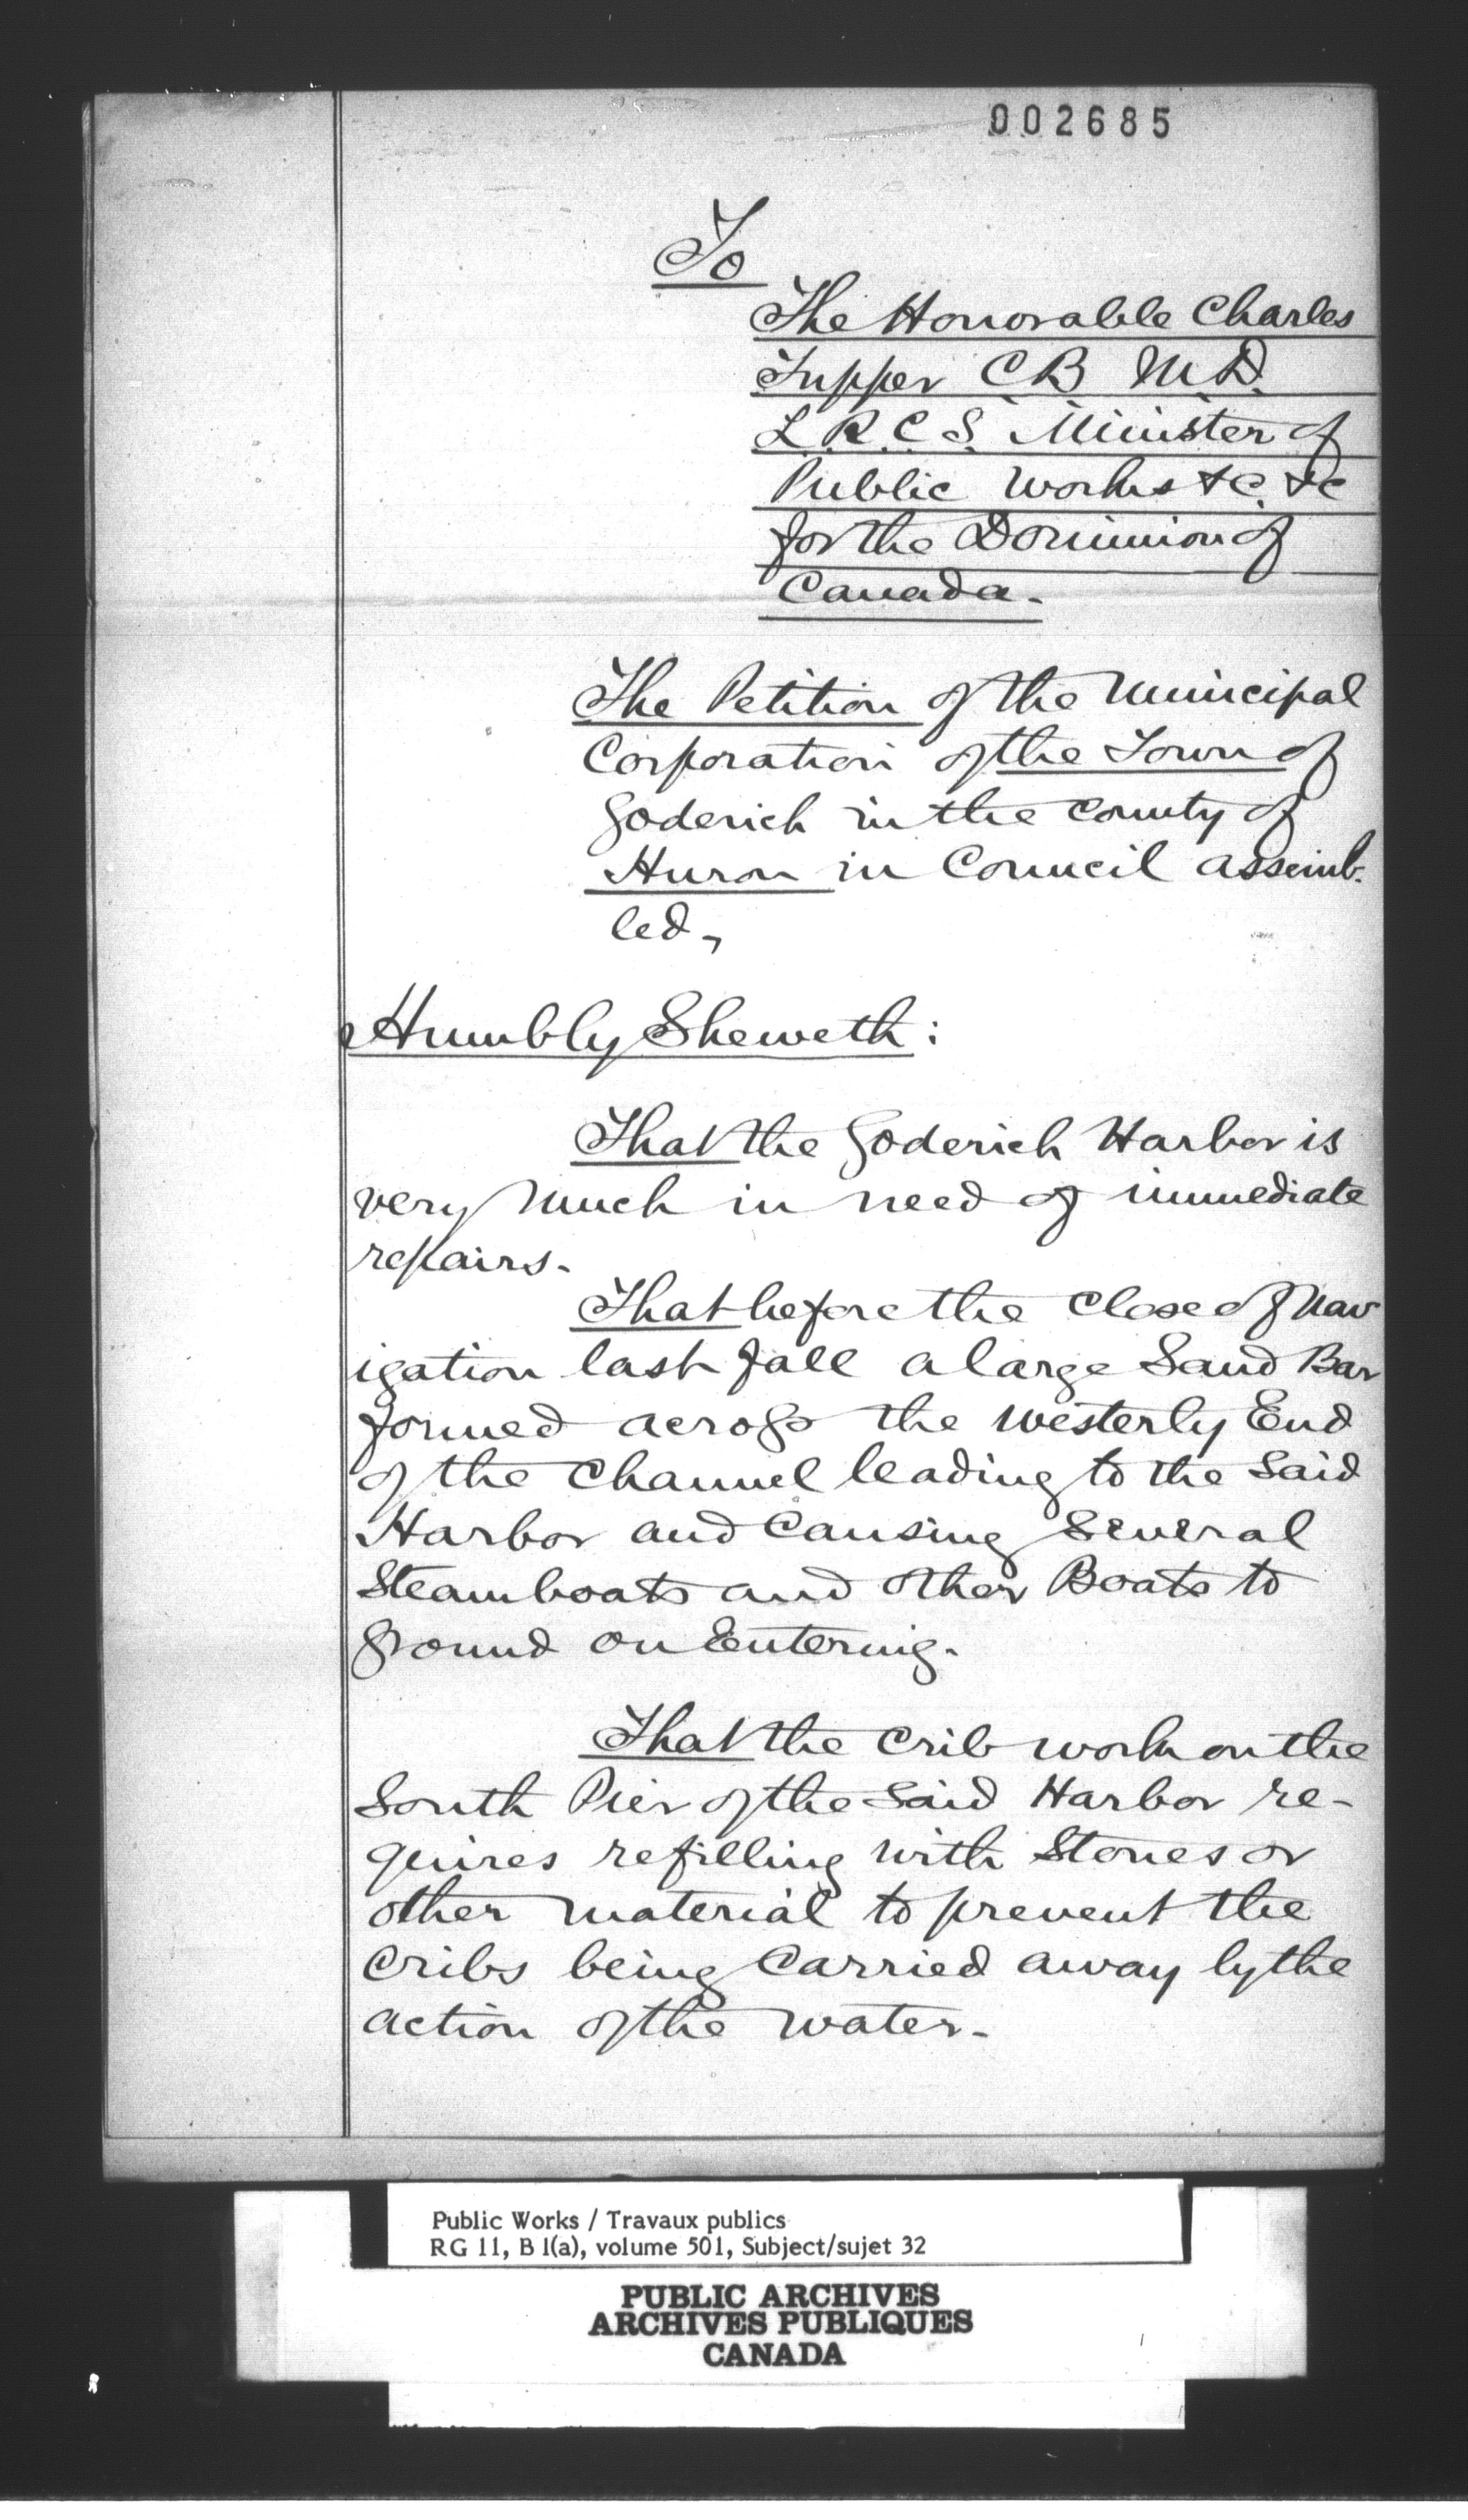 002685
To
The Honorable Charles
Tupper C.B. M.D.
L.R.C.S. Minister of
Public Works &c. &c
for the Dominion of
Canada.
The Petition of the Municipal
Corporation of the Town of
Goderich in the County of
Huron in Council assemb-
led,
Humbly Sheweth:
That the Goderich Harbor is
very much in need of immediate
repairs.
That before the Close of Nav
igation last fall a large Sand Bar
formed across the Westerly End
of the Channel leading to the Said
Harbor and Causing Several
Steamboats and other Boats to
ground on Entering.
That the Crib work on the
South Pier of the Said Harbor re-
quires refilling with Stones or
other material to prevent the
Cribs being Carried away by the
action of the water.
Public Works / Travaux publics
RG 11, B 1(a), volume 501, Subject/sujet 32
PUBLIC ARCHIVES
ARCHIVES PUBLIQUES
CANADA